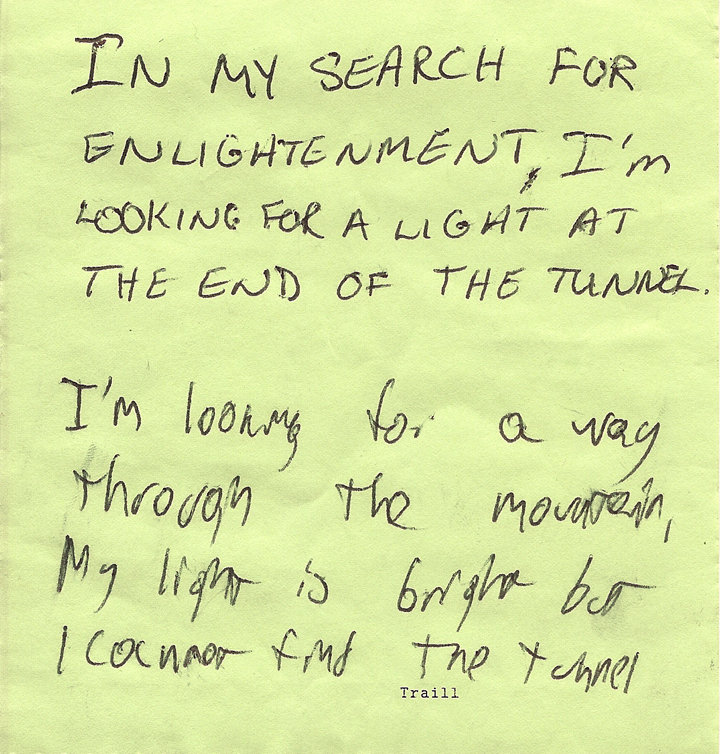 IN MY SEARCH FOR
ENLIGHTENMENT, I'm
LOOKING FOR A LIGHT AT
THE END OF THE TUNNEL.
I'm looking for a way
through the mountain,
My light is bright but
I cannot find the tunnel
Traill